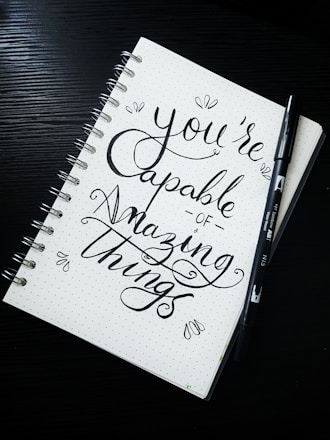 you're
Capable
-OF-
Amazing
Things
N15